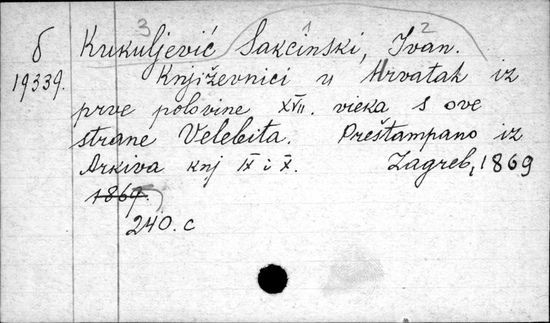 3 1 2
б Kukuljević Sakcinski, Ivan.
19339. Književnici u Hrvatah iz
prve polovine XVII. vieka s ove
strane Velebita. Preštampano iz
Arkiva knj IX i X. Zagreb, 1869
1869.
240. c